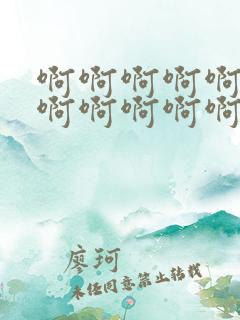 啊啊啊啊啊
啊啊啊啊啊
廖珂
未经同意禁止转载